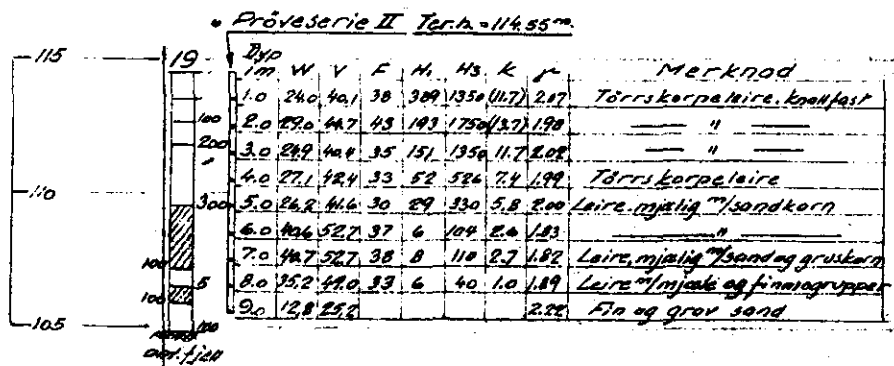 • Pröveserie II Ter.h. = 114.55 m.
115
19
Dyp i m W V F H₁ H₃ k γ Merknad
1.0 24.0 40.1 38 389 1350 (11.7) 2.07 Törrskorpeleire. knallfast
100 2.0 29.0 44.7 43 193 1750 (13.7) 1.98 — " —
200 3.0 24.9 40.4 35 151 1350 11.7 2.02 — " —
110
4.0 27.1 42.4 33 52 526 7.4 1.99 Törrskorpeleire
300 5.0 26.2 41.6 30 29 330 5.8 2.00 Leire. mjælig m/sandkorn
6.0 40.6 52.7 37 6 104 2.6 1.83 — " —
100 7.0 40.7 52.7 38 8 110 2.7 1.82 Leire, mjælig m/sand og gruskorn
5 8.0 35.2 49.0 33 6 40 1.0 1.89 Leire m/mjæle og finmogrupper
100
9.0 12.8 25.2 2.22 Fin og grov sand
105
100